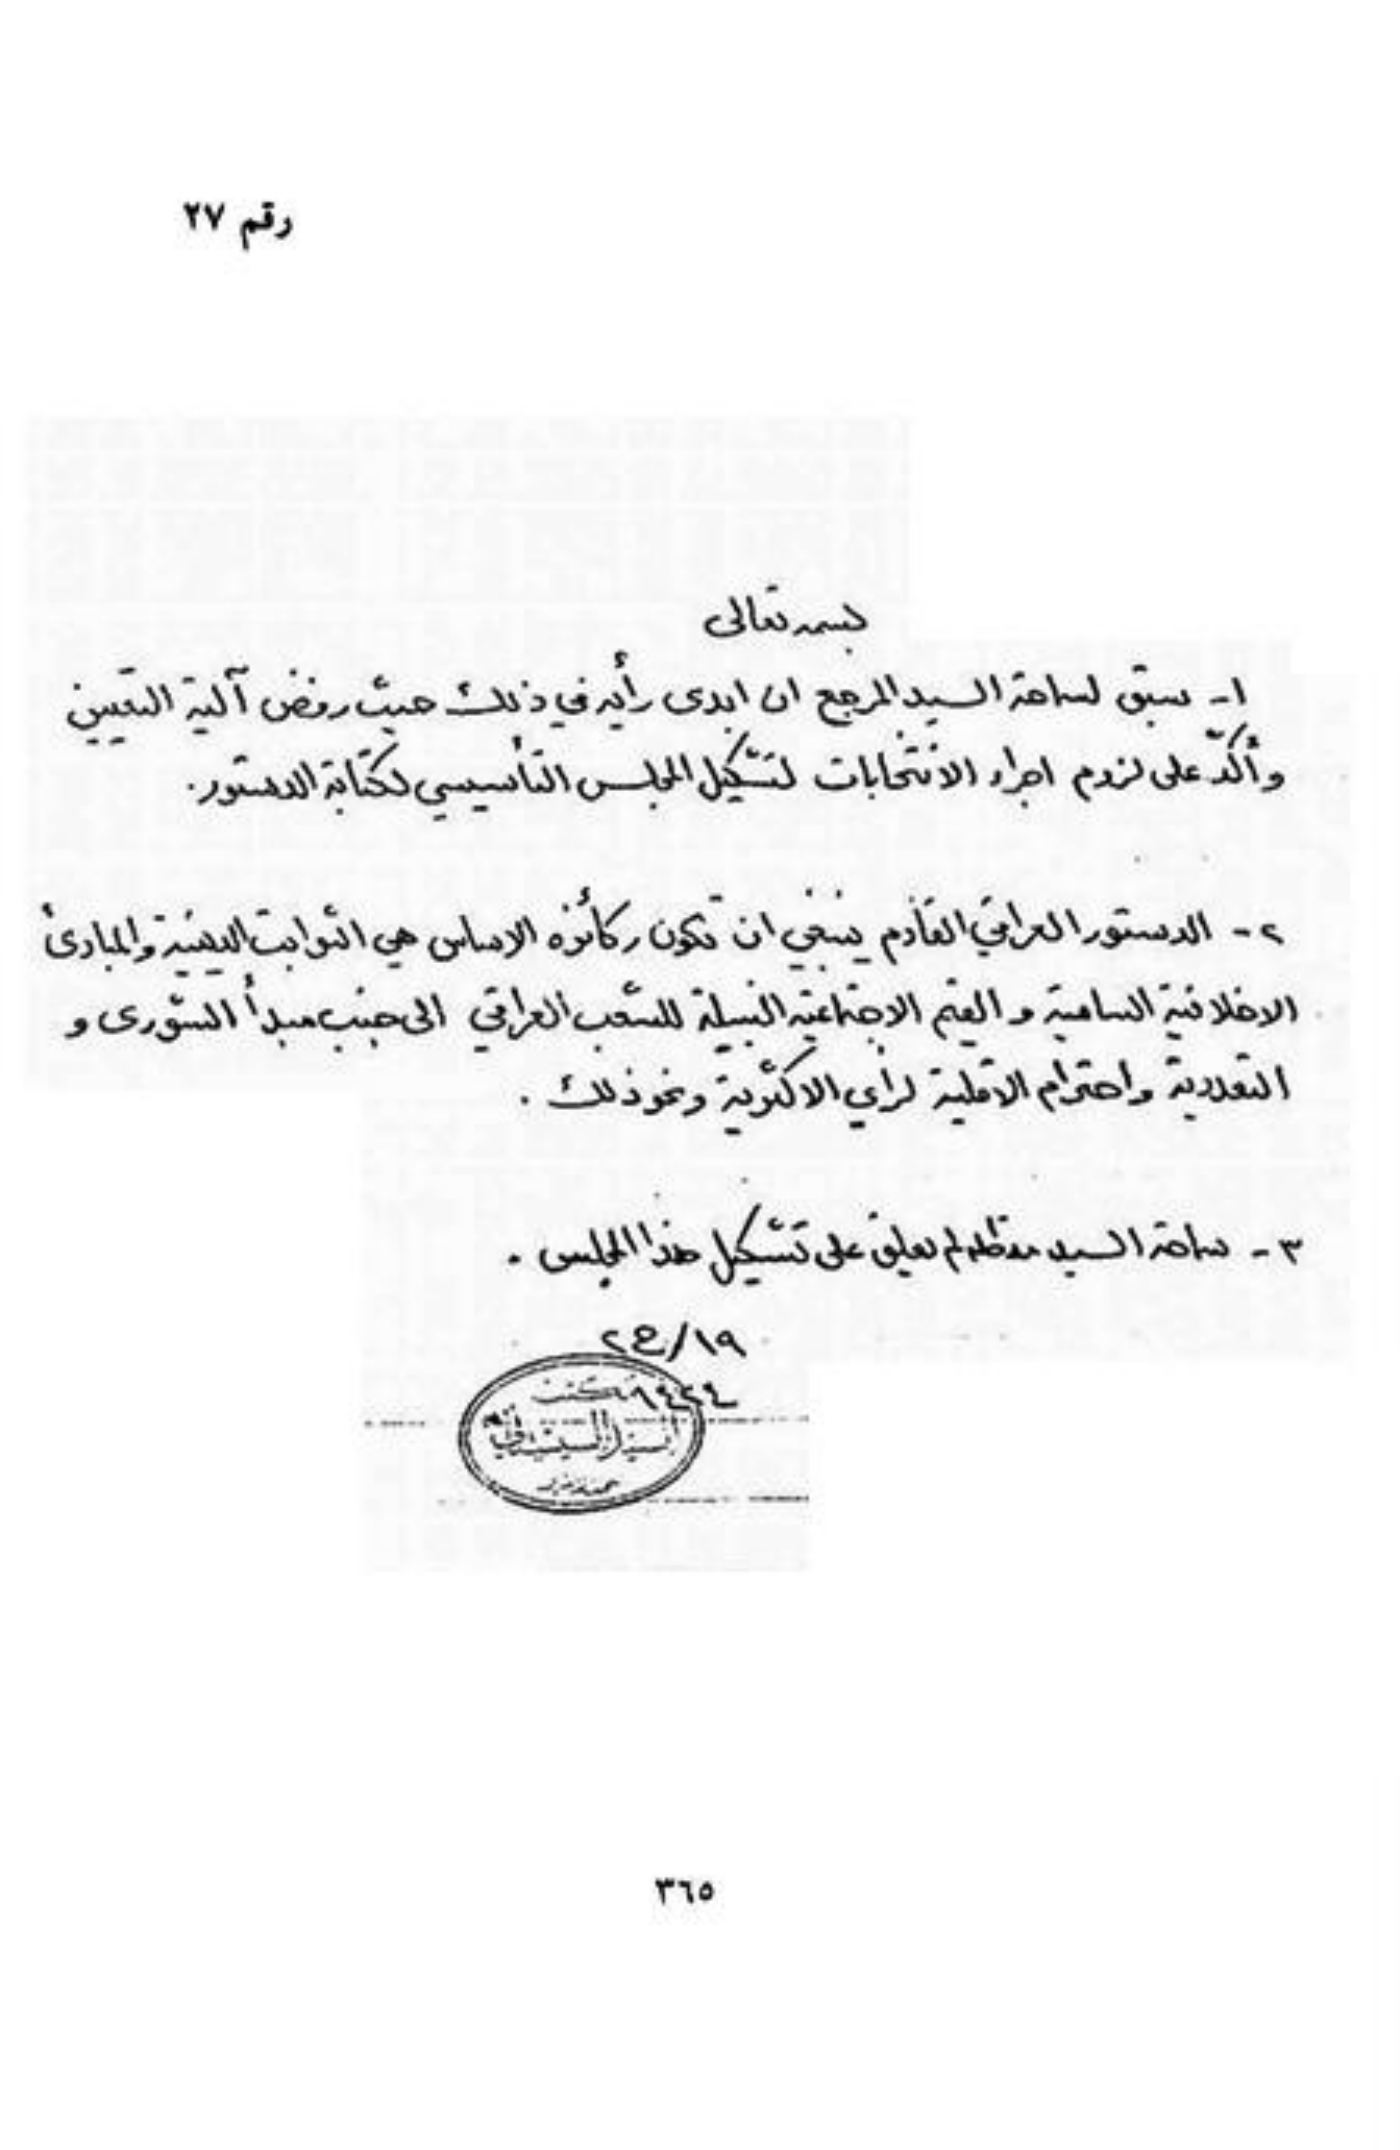 رقم ٢٧
بسمه تعالى
١- سبق لسماحة السيد المرجع ان ابدى رأيه في ذلك حيث رفض آلية التعيين
وأكّد على لزوم اجراء الانتخابات لتشكيل المجلس التأسيسي لكتابة الدستور.
٢- الدستور العراقي القادم ينبغي ان تكون ركائزه الاساس هي الثوابت الدينية والمبادئ
الاخلاقية السامية والقيم الاجتماعية النبيلة للشعب العراقي الى جنب مبدأ الشورى و
التعددية واحترام الاقلية لرأي الاكثرية ونحو ذلك.
٣- سماحة السيد مدظله لم يعلق على تشكيل هذا المجلس.
١٩/ج٢
١٤٢٤
مكتب
السيد السيستاني
٣٦٥